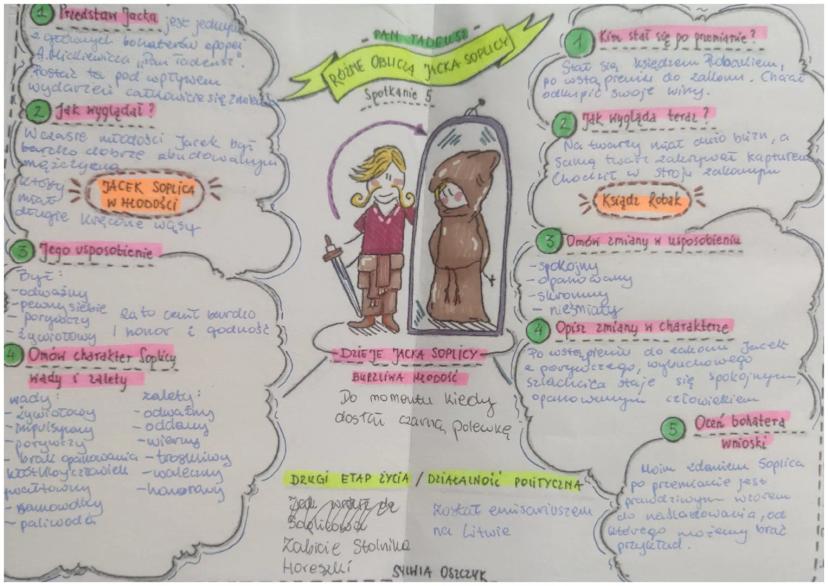 PAN TADEUSZ
RÓŻNE OBLICZA JACKA SOPLICY
Spotkanie 5
1 Przedstaw Jacka
jest jednym
z głównych bohaterów epopei
A. Mickiewicza "Pan Tadeusz".
Postać ta pod wpływem
wydarzeń całkowicie się
2 Jak wyglądał?
W czasie młodości Jacek był
bardzo dobrze zbudowanym
mężczyzną
który
miał
długie kręcone wąsy
JACEK SOPLICA
W MŁODOŚCI
3 Jego usposobienie
Był:
- odważny
- pewny siebie
- porywczy
- żywiołowy
Za to cenił bardzo
honor i godność
4 Omów charakter Soplicy
wady i zalety
wady:
- żywiołowy
- impulsywny
- porywczy
- brak opanowania
człowiek
gwałtowny
- samowolny
- paliwoda
zalety:
- odważny
- oddany
- wierny
- troskliwy
- waleczny
- honorowy
DZIEJE JACKA SOPLICY
BURZLIWA MŁODOŚĆ
Do momentu kiedy
dostał czarną polewkę
DRUGI ETAP ŻYCIA / DZIAŁALNOŚĆ POLITYCZNA
Zabicie Stolnika
Horeszki
Został emisariuszem
na Litwie
SYLWIA OSZCZYK
1 Kim stał się po przemianie?
Stał się księdzem Robakiem,
po wstąpieniu do zakonu. Chciał
odkupić swoje winy.
2 Jak wygląda teraz?
Na twarzy miał dużo blizn, a
samą twarz zakrywał kapturem
Chodził w stroju zakonnym
Ksiądz Robak
3 Omów zmiany w usposobieniu
- spokojny
- opanowany
- skromny
- nieśmiały
4 Opisz zmiany w charakterze
Po wstąpieniu do zakonu Jacek
z porywczego, wybuchowego
szlachcica staje się spokojnym,
opanowanym człowiekiem
5 Oceń bohatera
wnioski
Moim zdaniem Soplica
po przemianie jest
prawdziwym wzorem
do naśladowania, od
którego możemy brać
przykład.